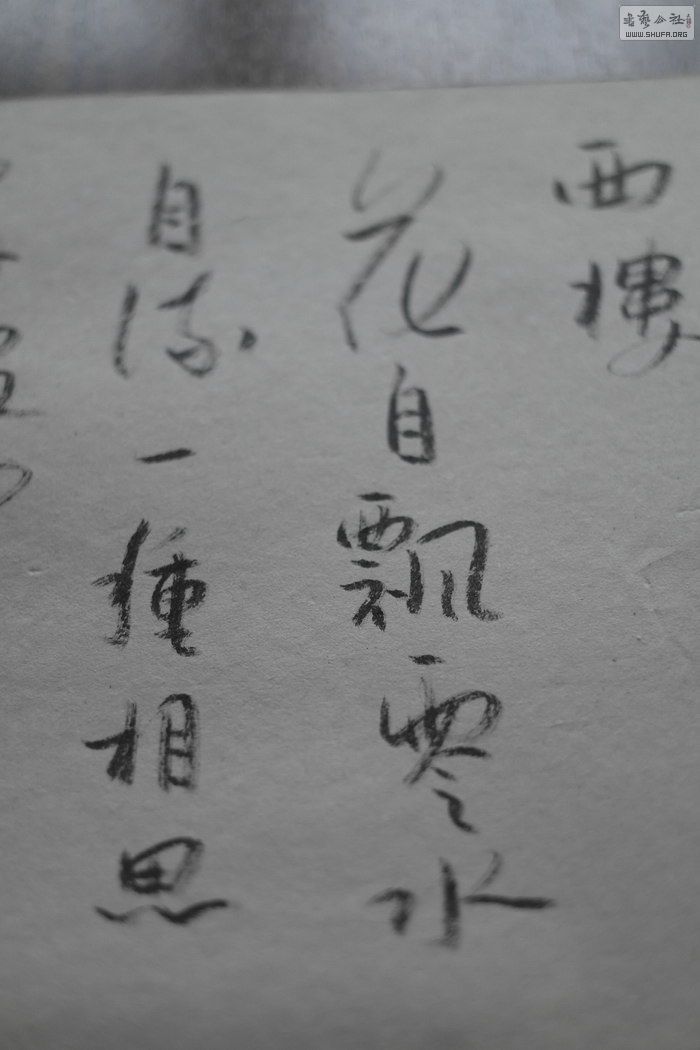 西樓
花自飄零水
自流一種相思
書藝公社
WWW.SHUFA.ORG